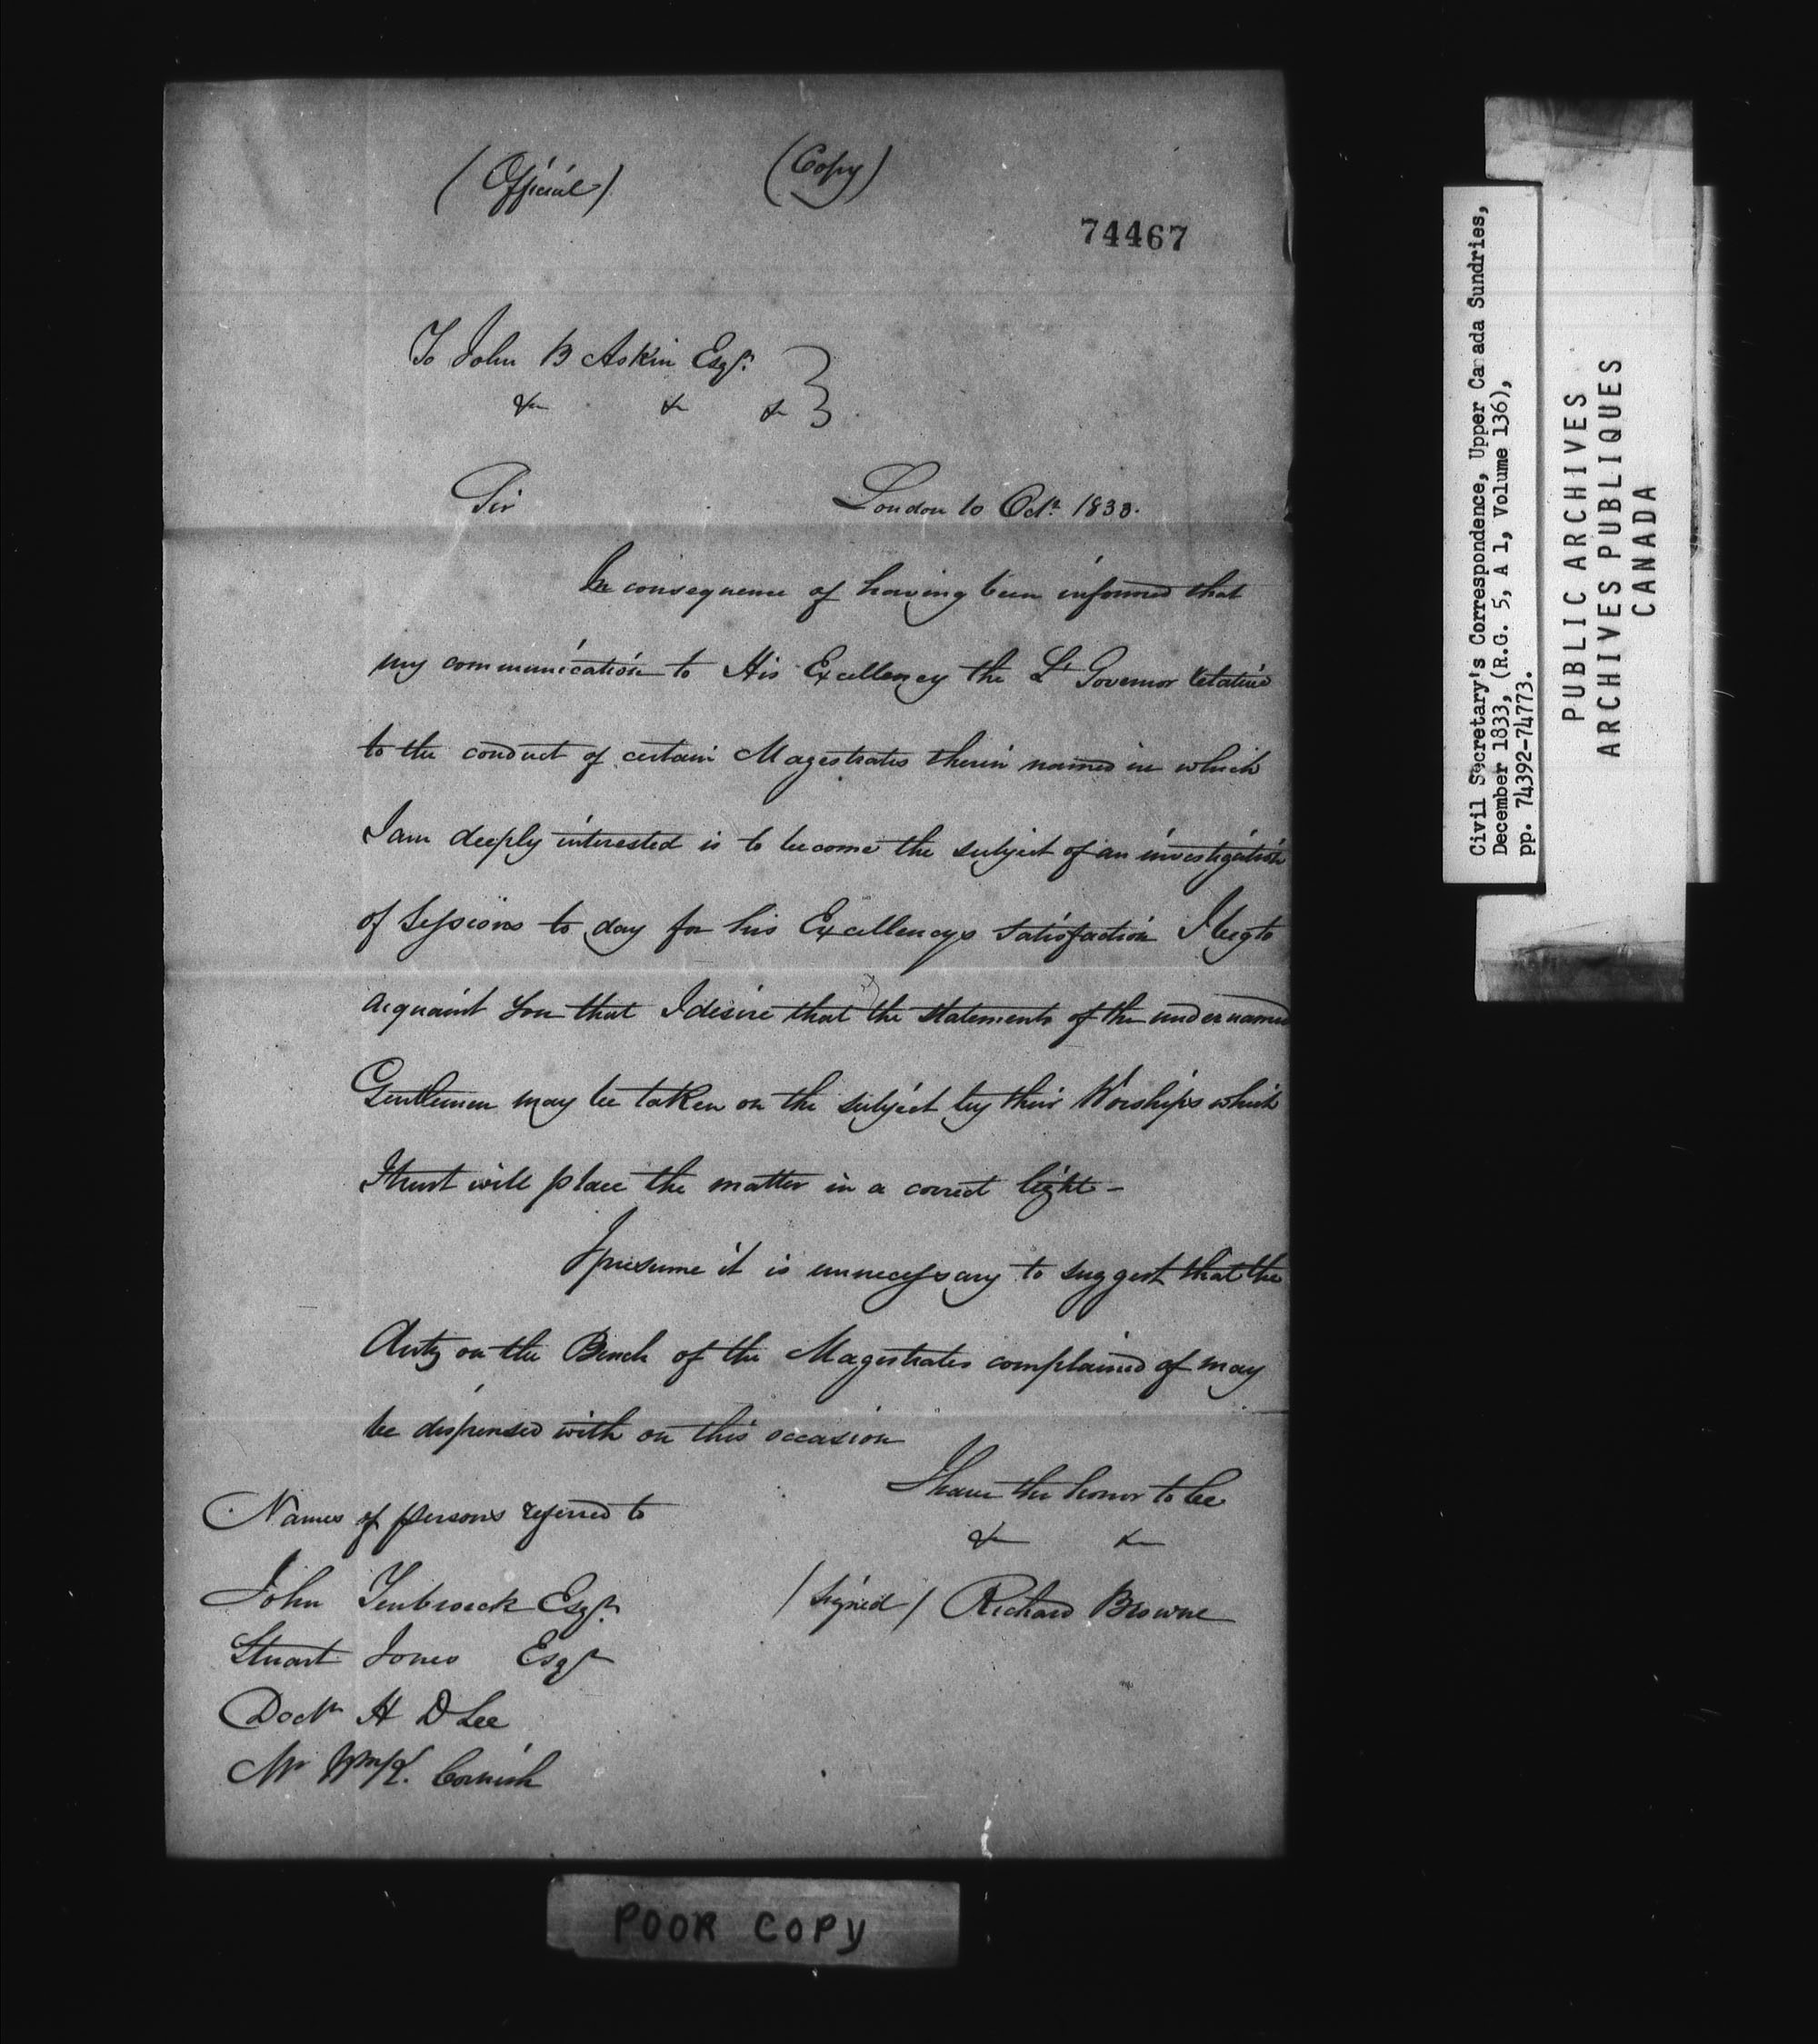 (Official) (Copy)
74467
To John B Askin Esqr.
&c & &
Sir London 10 Octr. 1833.
In consequence of having been informed that
my communication to His Excellency the Lt Governor relative
to the conduct of certain Magestrates therein named in which
I am deeply interested is to become the subject of an investigation
of Sessions to day for his Excellencys satisfaction I beg to
acquaint you that I desire that the statements of the undernamed
Gentlemen may be taken on the subject by their Worships which
I trust will place the matter in a correct light -
I presume it is unnecessary to suggest that the
duty on the Bench of the Magestrates complained of may
be dispensed with on this occasion
I have the honor to be
&c &
Names of persons referred to
/signed/ Richard Browne
John Tenbroeck Esqr.
Stuart Jones Esqr
Doctr H D Lee
Mr Wm K. Cornish
POOR COPY
Civil Secretary's Correspondence, Upper Canada Sundries,
December 1833, (R.G. 5, A 1, Volume 136),
pp. 74392-74773.
PUBLIC ARCHIVES
ARCHIVES PUBLIQUES
CANADA